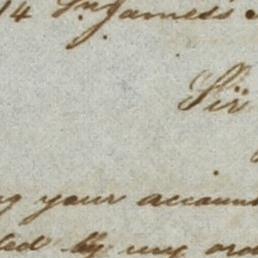 14 St James's
Sir
g your account
ded by my ord